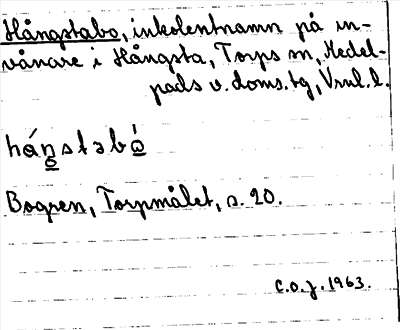 Hångstabo, inkolentnamn på in-
vånare i Hångsta, Torps sn, Medel-
pads v. doms.tg, Vnul.l.
háŋstəbò
Bogren, Torpmålet, s. 20.
C.O.J. 1963.